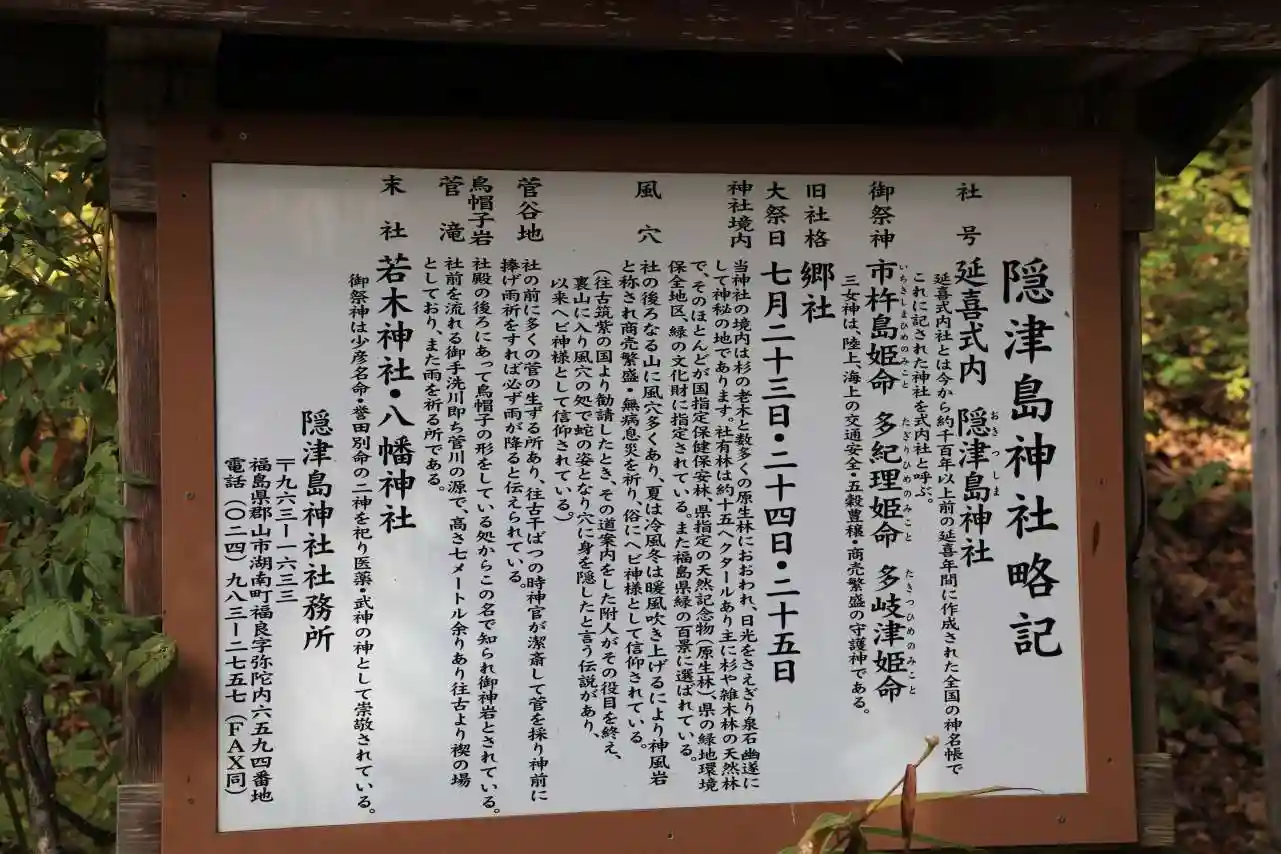 隠津島神社略記
社号 延喜式内 隠津島神社
おきつしま
延喜式内社とは今から約千百年以上前の延喜年間に作成された全国の神名帳で
これに記された神社を式内社と呼ぶ。
御祭神 市杵島姫命 多紀理姫命 多岐津姫命
いちきしまひめのみこと たぎりひめのみこと たきつひめのみこと
三女神は、陸上、海上の交通安全・五穀豊穣・商売繁盛の守護神である。
旧社格 郷社
大祭日 七月二十三日・二十四日・二十五日
神社境内 当神社の境内は杉の老木と数多くの原生林におおわれ、日光をさえぎり泉石幽遂に
して神秘の地であります。社有林は約十五ヘクタールあり主に杉や雑木林の天然林
で、そのほとんどが国指定保健保安林、県指定の天然記念物(原生林)、県の緑地環境
保全地区、緑の文化財に指定されている。また福島県緑の百景に選ばれている。
風穴 社の後ろなる山に風穴多くあり、夏は冷風冬は暖風吹き上げるにより神風岩
と称され商売繁盛・無病息災を祈り、俗にヘビ神様として信仰されている。
(往古筑紫の国より勧請したとき、その道案内をした附人がその役目を終え、
裏山に入り風穴の処で蛇の姿となり穴に身を隠したと言う伝説があり、
以来ヘビ神様として信仰されている。)
菅谷地 社の前に多くの菅の生ずる所あり、往古干ばつの時神官が潔斎して菅を採り神前に
捧げ雨祈をすれば必ず雨が降ると伝えられている。
烏帽子岩 社殿の後ろにあって烏帽子の形をしている処からこの名で知られ御神岩とされている。
菅滝 社前を流れる御手洗川即ち菅川の源で、高さ七メートル余りあり往古より禊の場
としており、また雨を祈る所である。
末社 若木神社・八幡神社
御祭神は少彦名命・誉田別命の二神を祀り医薬・武神の神として崇敬されている。
隠津島神社社務所
〒九六三ー一六三三
福島県郡山市湖南町福良字弥陀内六五九四番地
電話(〇二四)九八三ー二七五七(FAX同)